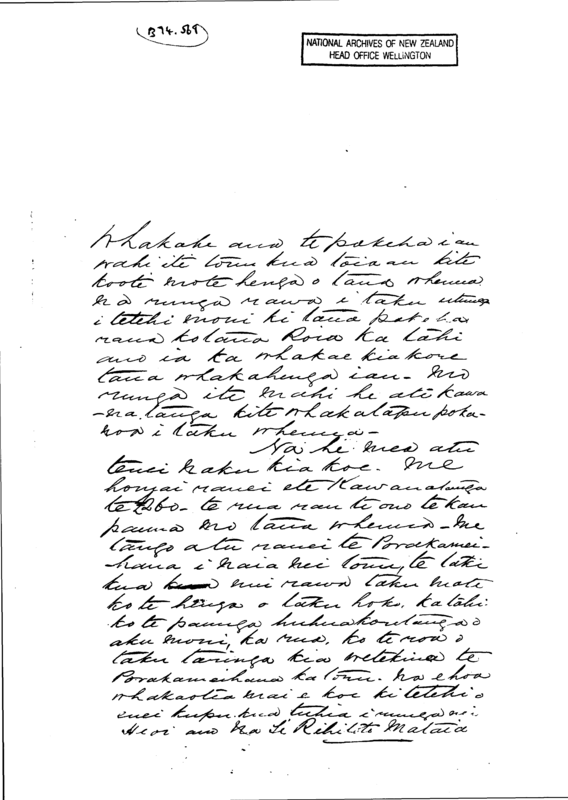 B74.568
NATIONAL ARCHIVES OF NEW ZEALAND
HEAD OFFICE WELLINGTON
Whakahe ana te pakeha i au
wahi ite tonu kua toia au kite
kooti mote henga o tana whenua
na runga rawa i taku utunga
i tetehi moni ki taua pakeha
raua kotana Roia ka tahi
ano ia ka whakae kiakore
tana whakahenga iau - mo
runga ite mahi he ate kawa
-na tanga kite whakatapu poka-
noa i taku whenua -
Na he mea atu
tenei naku kia koe. Me
hongai ranei ete Kawanatanga
te £260 - te rua rau te ono te kau
pauna mo taua whenua - Me
tango atu ranei te Porakamei-
hana i naia nei tonu, te take
kua nui rawa taku mate
ko te henga o taku hoko, katahi
ko te paunga huhuakoretanga o
aku moni, ka rua, ko te roa o
taku taringa kia wetekina te
Porakameihana ka toru. Na e hoa
whakaotia mai e koe ki tetehi o
enei kupu kua tuhia i runga nei
Heoi ano Na Te Rihitoto Mataia